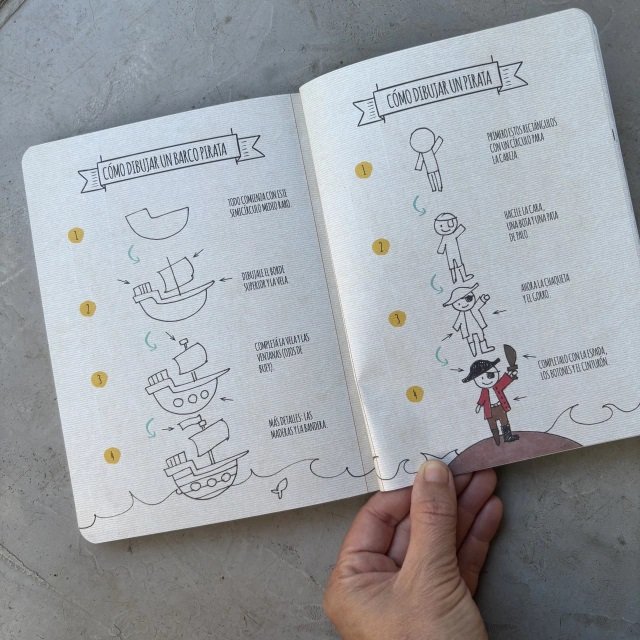 CÓMO DIBUJAR UN BARCO PIRATA
1
TODO COMIENZA CON ESTE
SEMICÍRCULO MEDIO RARO.
2
DIBUJALE EL BORDE
SUPERIOR Y LA VELA.
3
COMPLETÁ LA VELA Y LAS
VENTANAS (OJOS DE
BUEY).
4
MÁS DETALLES: LAS
MADERAS Y LA BANDERA.
CÓMO DIBUJAR UN PIRATA
1
PRIMERO ESTOS RECTÁNGULOS
CON UN CÍRCULO PARA
LA CABEZA.
2
HACELE LA CARA,
UNA BOTA Y UNA PATA
DE PALO.
3
AHORA LA CHAQUETA
Y EL GORRO.
4
COMPLETALO CON LA ESPADA,
LOS BOTONES Y EL CINTURÓN.